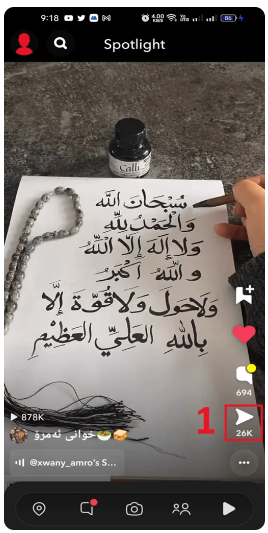 9:18
4.00 KB/S
86
Spotlight
Calli
سُبْحَانَ اللّٰه
وَالْحَمْدُ لِلّٰهِ
وَلَا إِلٰهَ إِلَّا اللّٰهُ
وَ اللّٰهُ أَكْبَرُ
وَلَا حَولَ وَلَا قُوَّةَ إِلَّا
بِاللّٰهِ العَلِيِّ العَظِيْمِ
694
878K
1
26K
خوانی ئەمڕۆ
@xwany_amro's S...